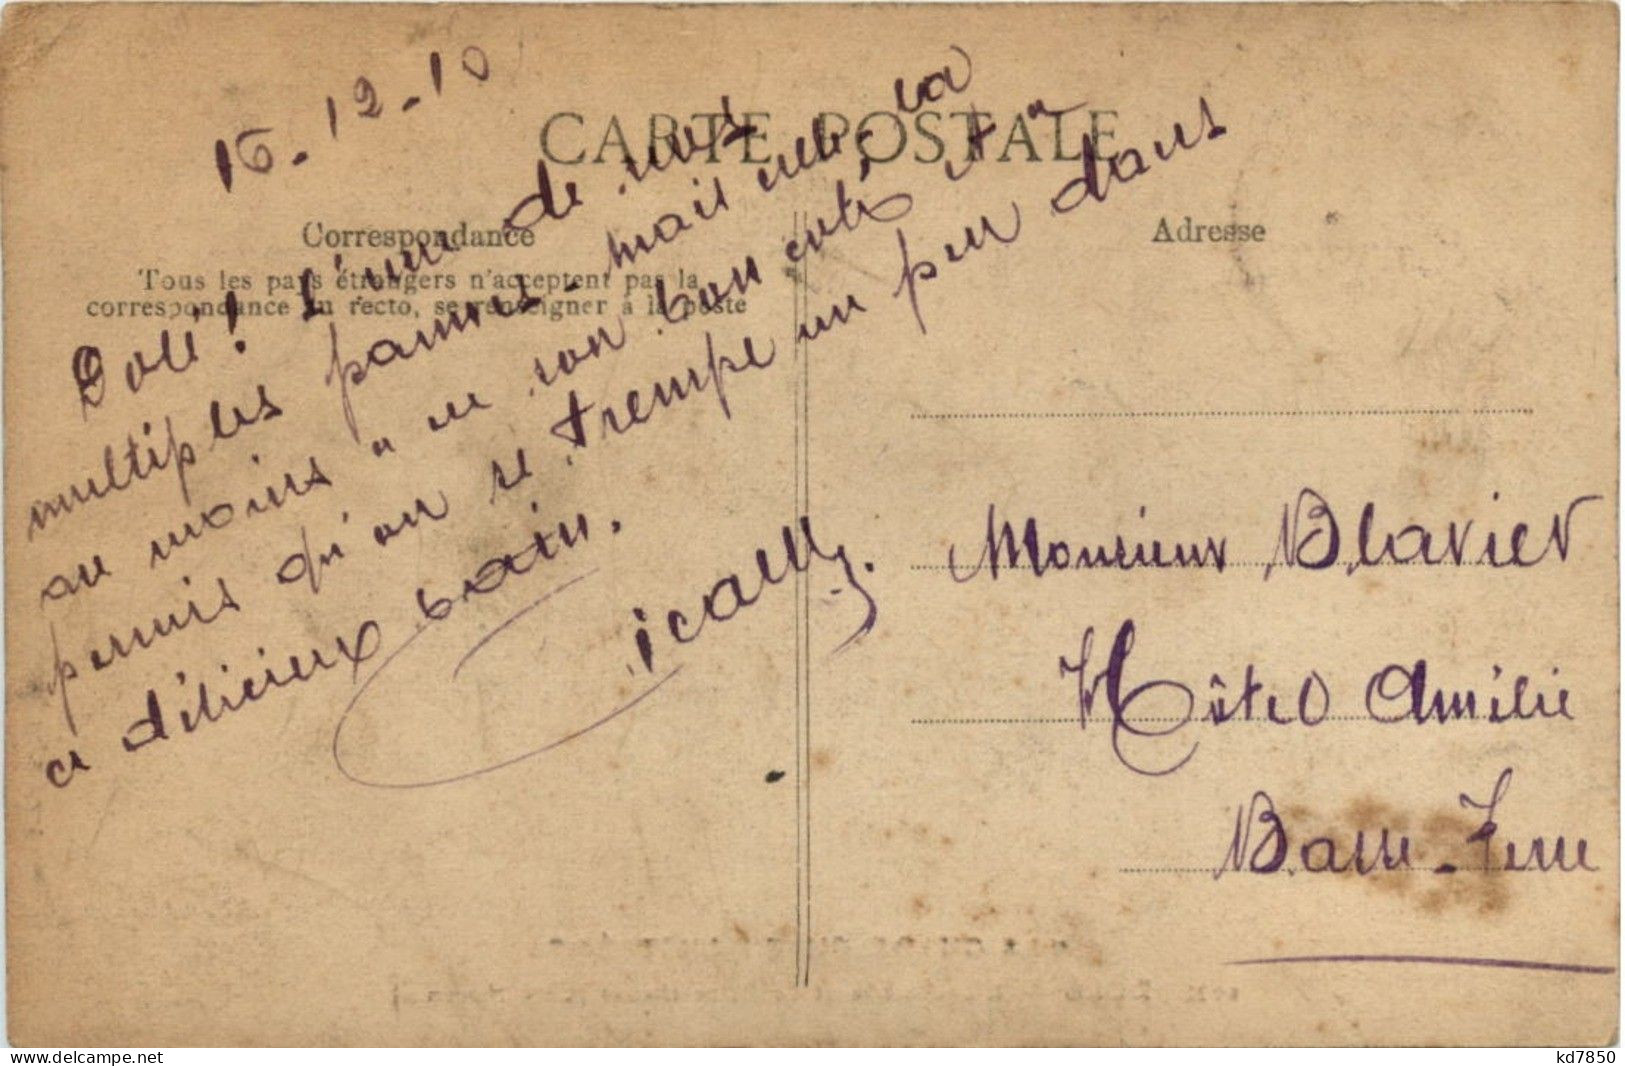 16-12-10
CARTE POSTALE
Correspondance
Tous les pays étrangers n'acceptent pas la
correspondance au recto, se renseigner à la poste
Dolé! l'une de nos
multiples pannes - mais celle-là
au moins "a son bon côté" il a
permis qu'on se trempe un peu dans
ce délicieux bain.
Adresse
Monsieur Blavier
Hôtel Amélie
Basse-Terre
delcampe.net
kd7850